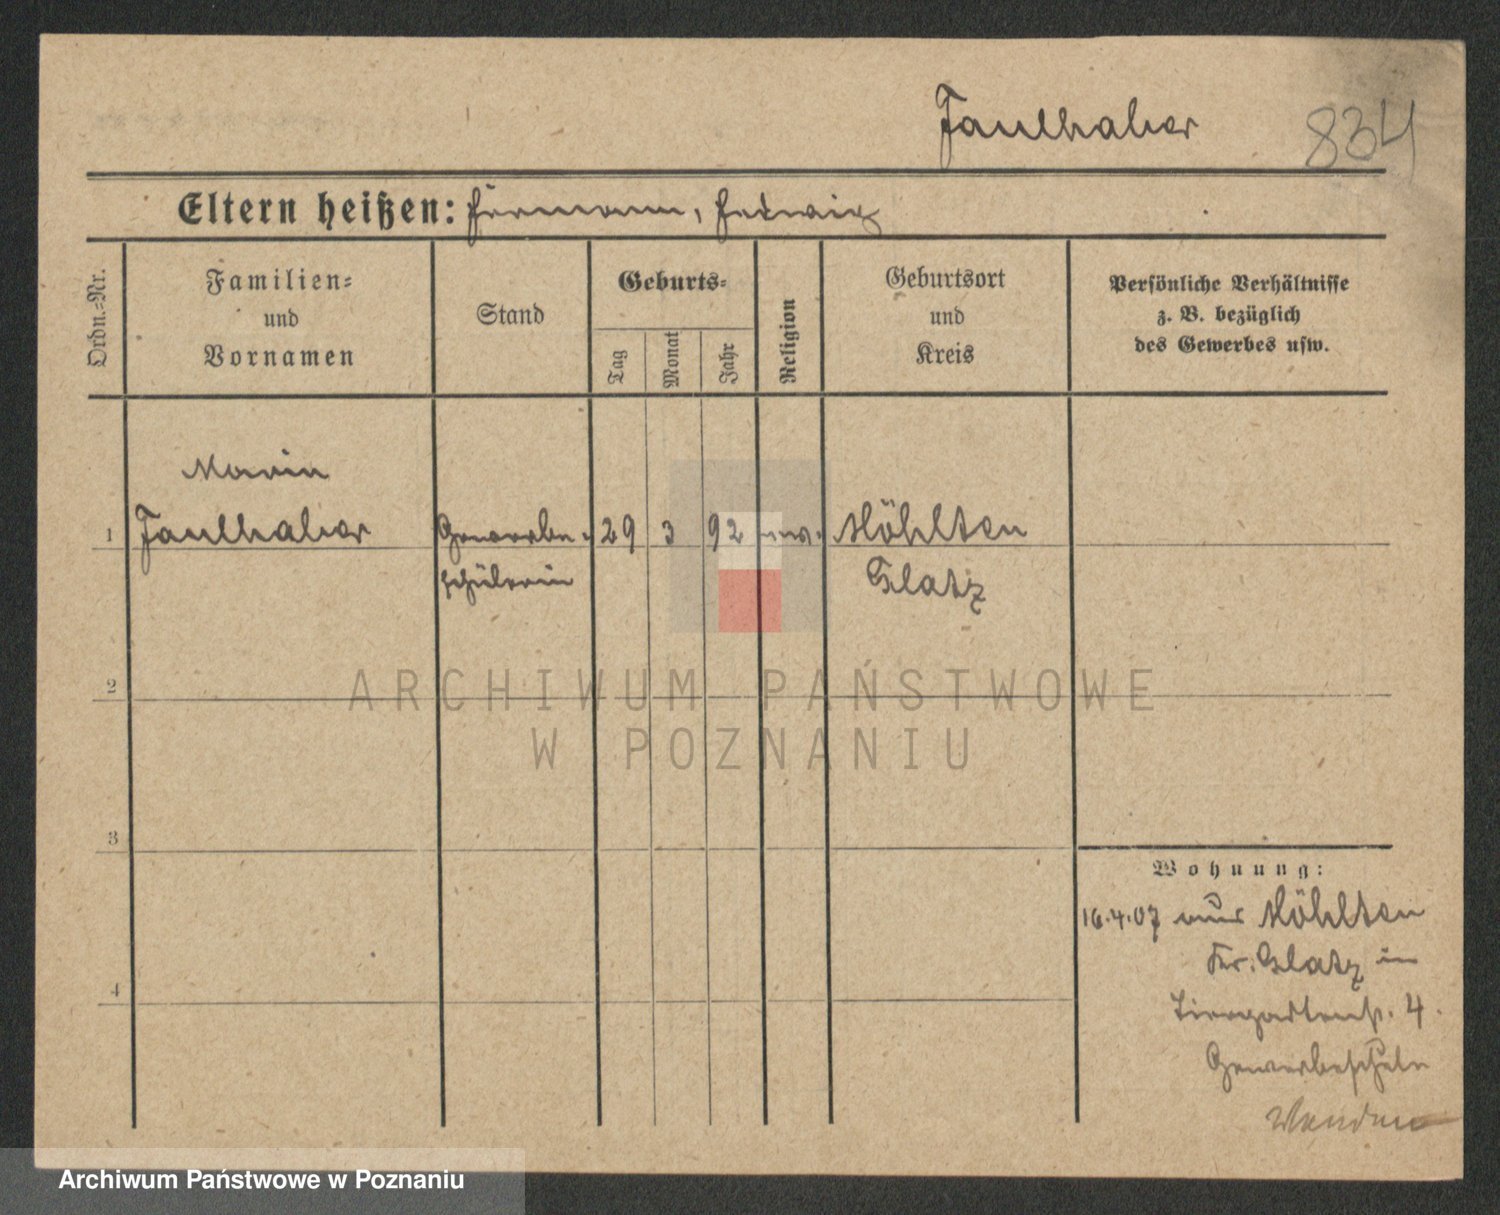 Faulhaber 834
Eltern heißen: Hermann, Hedwig
Ordn.=Nr.
Familien=
und
Vornamen
Stand
Geburts=
Tag
Monat
Jahr
Religion
Geburtsort
und
Kreis
Persönliche Verhältnisse
z. B. bezüglich
des Gewerbes usw.
Maria
1 Faulhaber Gewerbe- 29 3 92 Möhlten
schülerin Glatz
2
ARCHIWUM PAŃSTWOWE
W POZNANIU
3
Wohnung:
16.4.07 aus Möhlten
Kr. Glatz in
Tiergartenstr. 4.
Gewerbeschule
Wenden
4
Archiwum Państwowe w Poznaniu